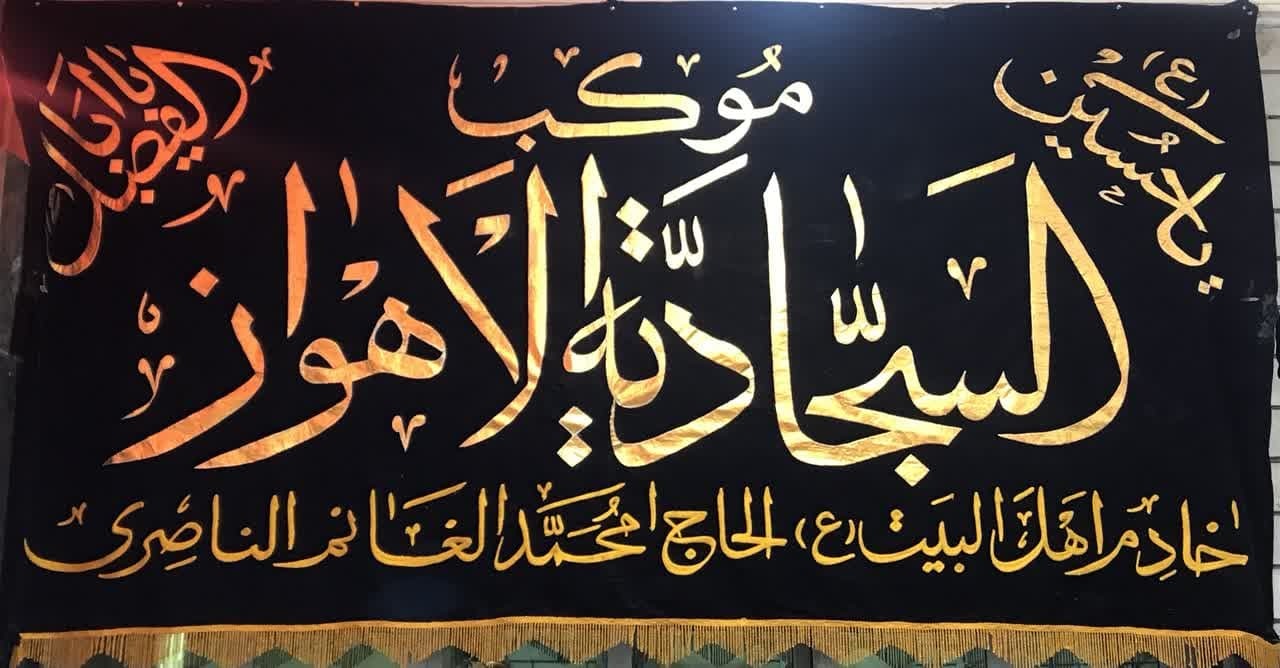 ياحسين (ع)
موكب
يا ابا الفضل
السَجّاديّة الاهواز
خادم اهل البيت (ع) الحاج محمّد الغانم الناصري